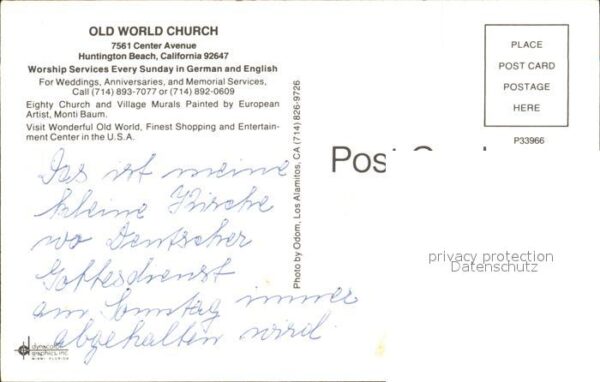 OLD WORLD CHURCH
7561 Center Avenue
Huntington Beach, California 92647
Worship Services Every Sunday in German and English
For Weddings, Anniversaries, and Memorial Services,
Call (714) 893-7077 or (714) 892-0609
Eighty Church and Village Murals Painted by European
Artist, Monti Baum.
Visit Wonderful Old World, Finest Shopping and Entertain-
ment Center in the U.S.A.
Das ist meine
kleine Kirche
wo Deutscher
Gottesdienst
am Sonntag immer
abgehalten wird
dynacolor
graphics, inc.
MIAMI, FLORIDA
Photo by Odom, Los Alamitos, CA (714) 826-9726
Post
PLACE
POST CARD
POSTAGE
HERE
P33966
privacy protection
Datenschutz